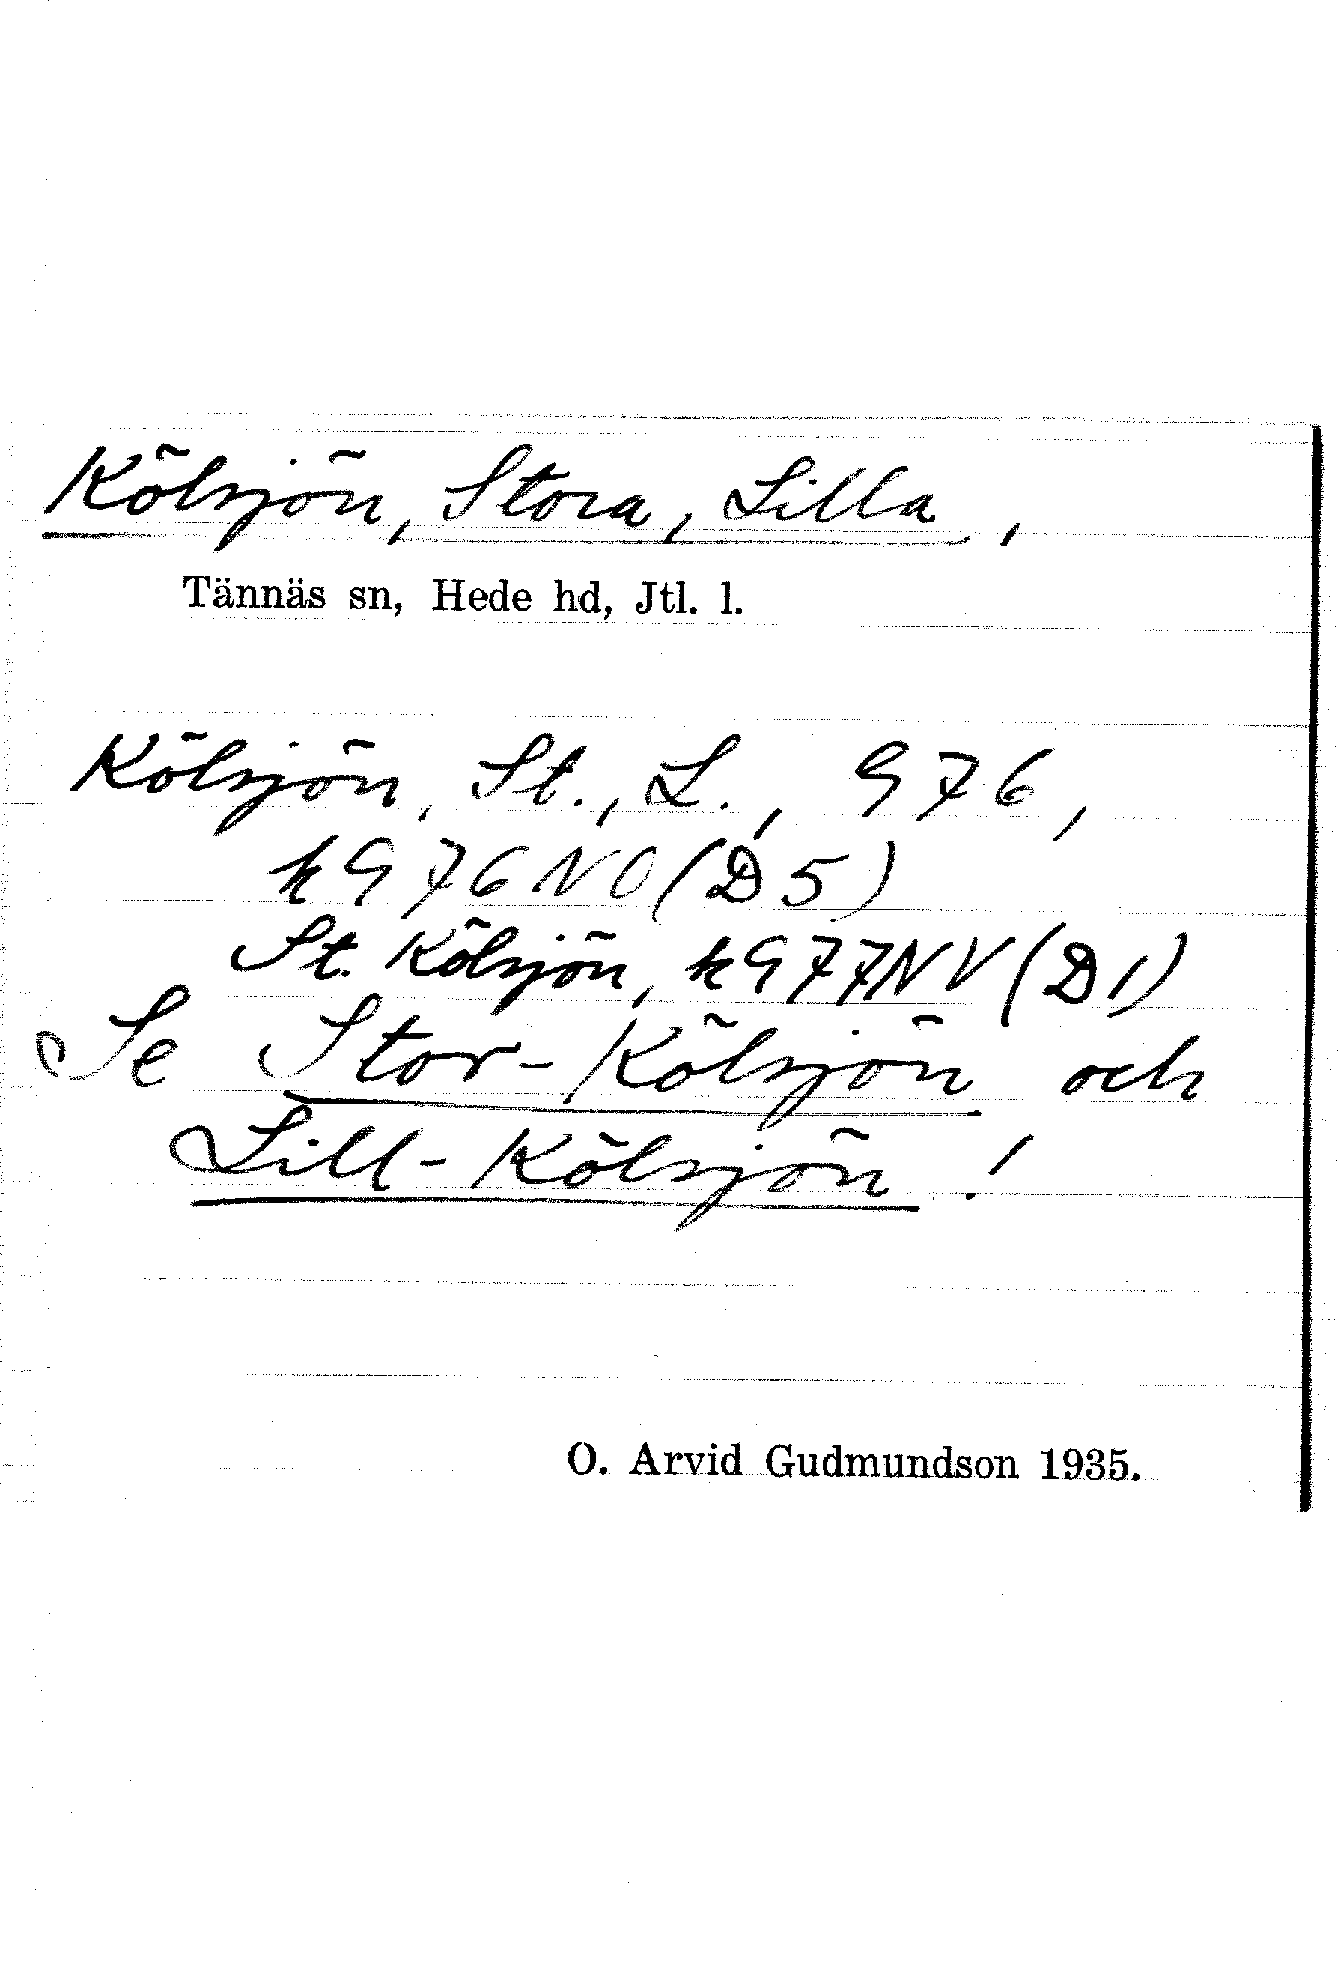 Kölsjön, Stora, Lilla,
Tännäs sn, Hede hd, Jtl. l.
Kölsjön, St., L., G76,
kG76NO(D5)
St. Kölsjön, kG77NV(D1)
Se Stor-Kölsjön och
Lill-Kölsjön!
O. Arvid Gudmundson 1935.